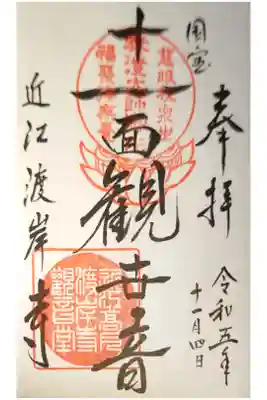 国宝
奉拝
令和五年
十一月四日
十一面観世音
近江渡岸寺
渡岸寺
観音堂